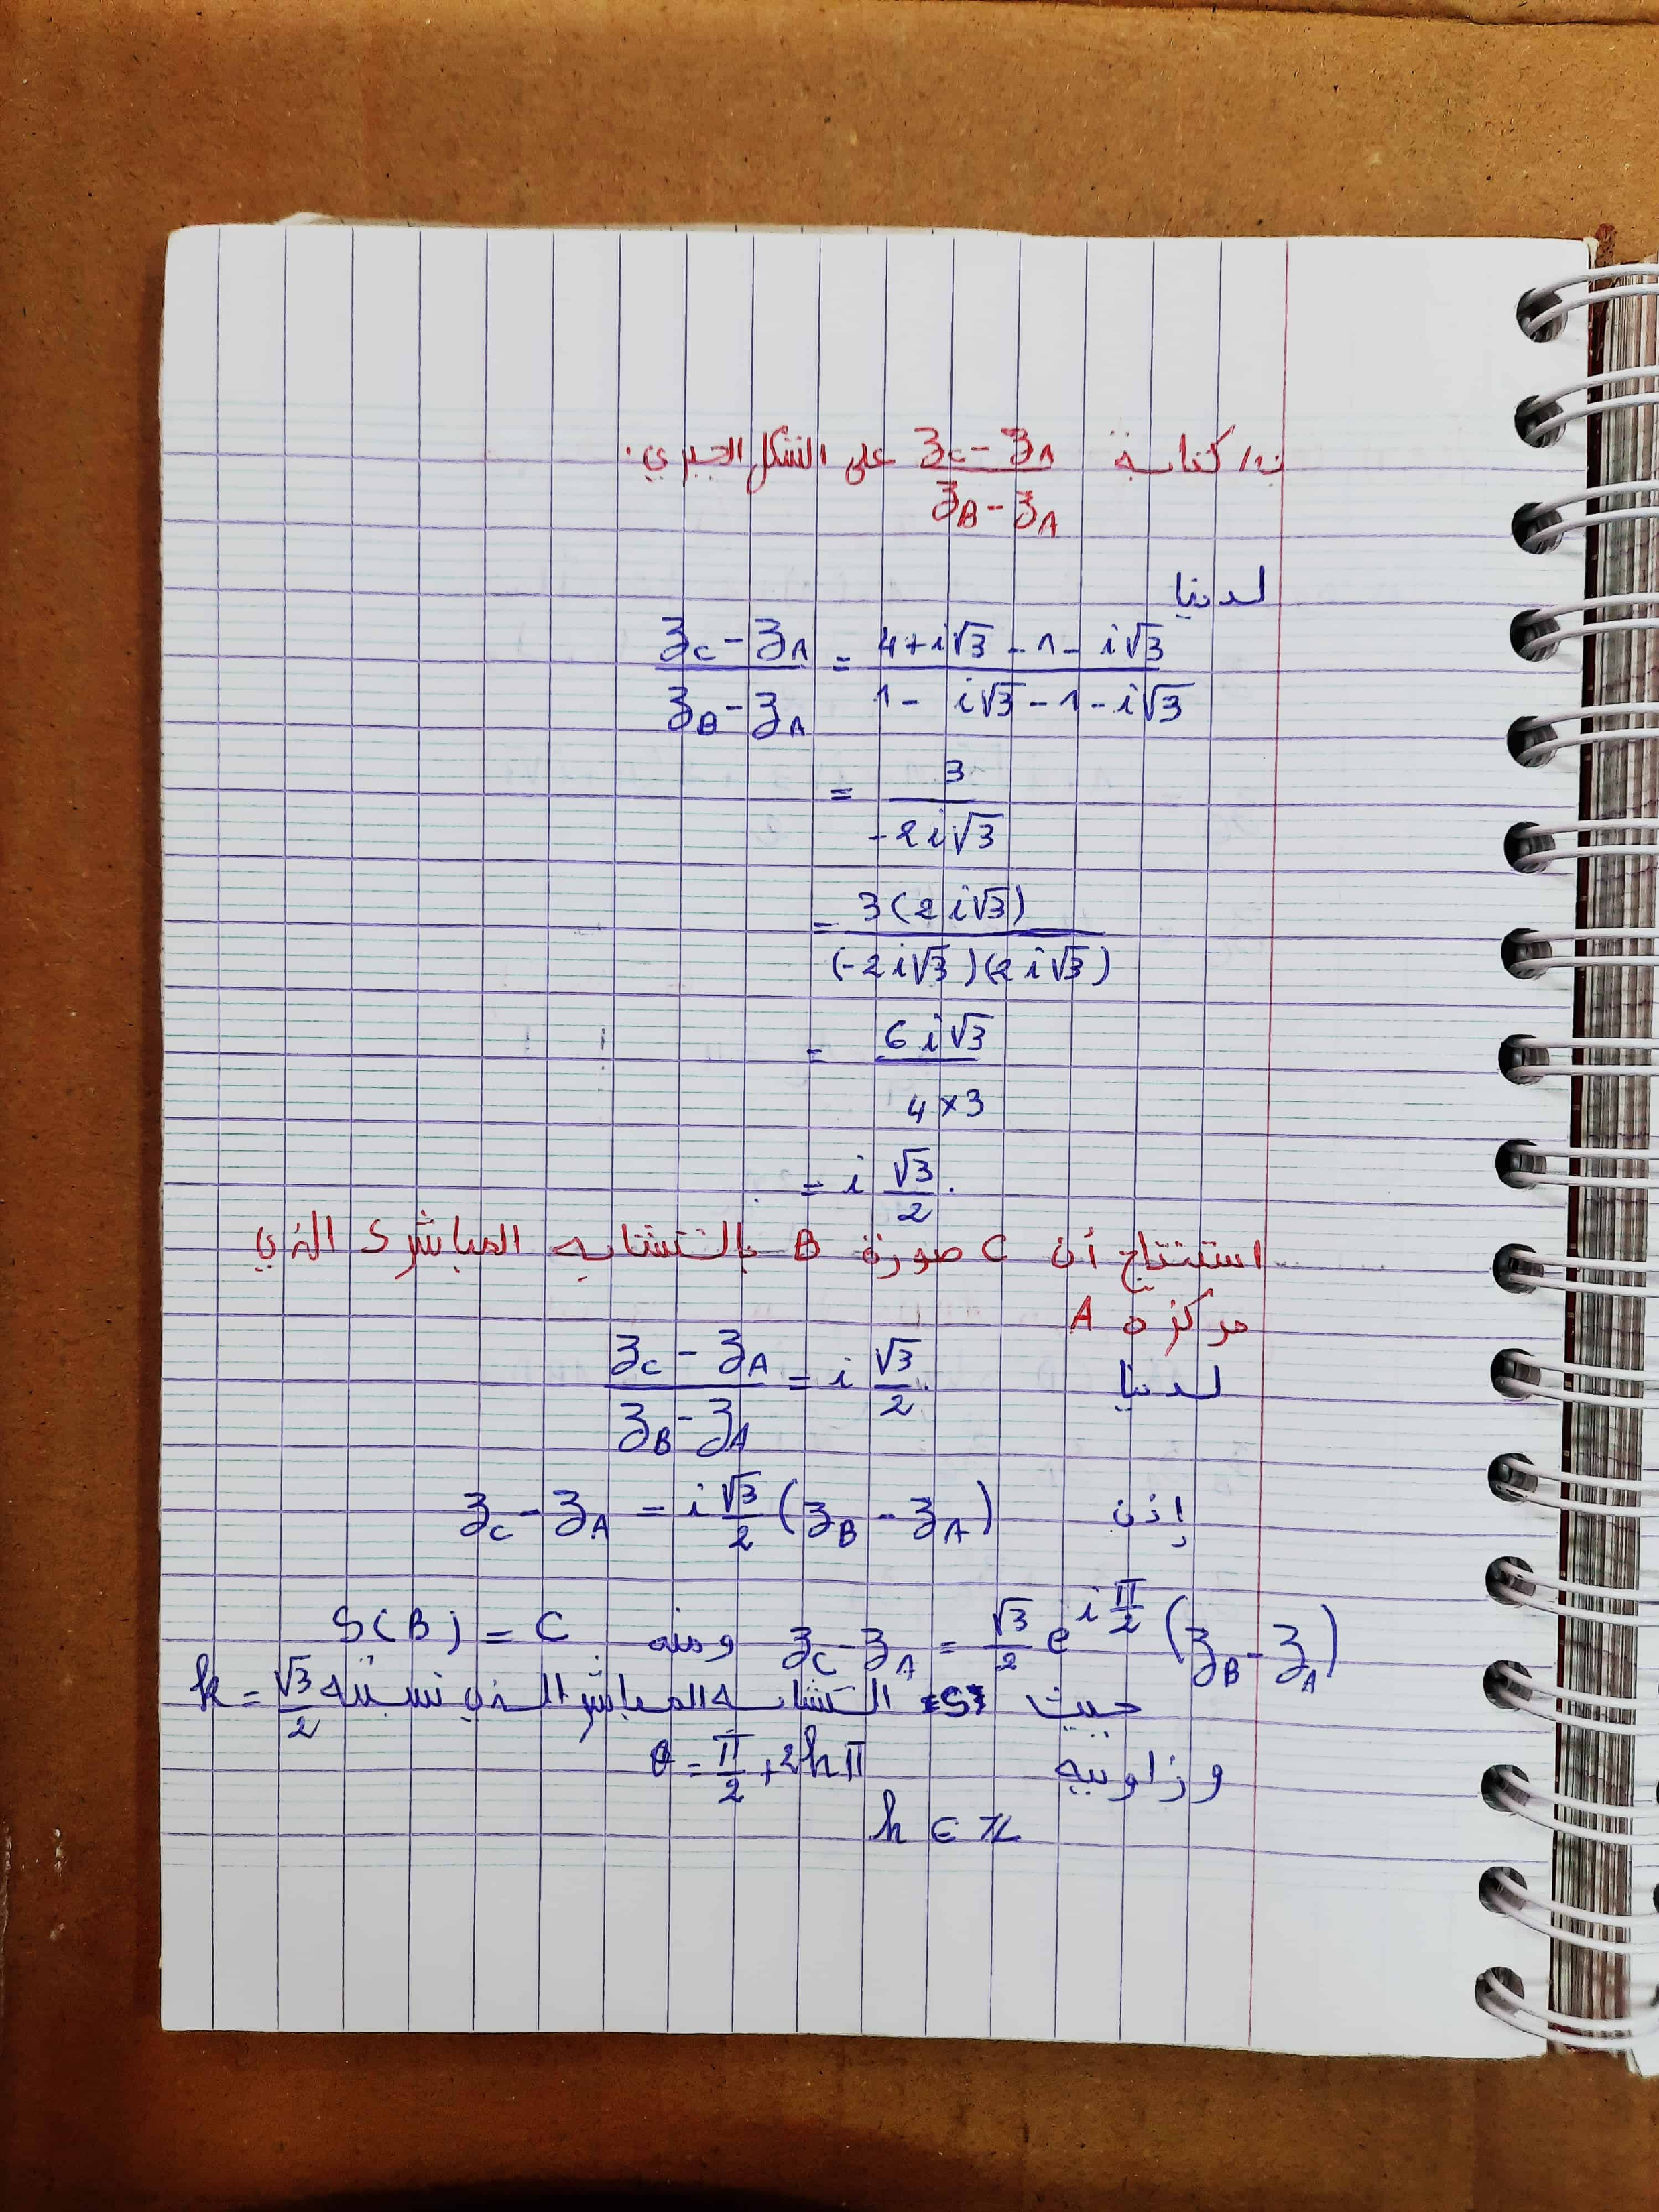 ب/ كتابة (z_C - z_A)/(z_B - z_A) على الشكل الجبري.
لدينا
(z_C - z_A)/(z_B - z_A) = (4 + i√3 - 1 - i√3)/(1 - i√3 - 1 - i√3)
= 3/(-2i√3)
= 3(2i√3)/((-2i√3)(2i√3))
= 6i√3/(4×3)
= i √3/2.
استنتاج أن C صورة B بالتشابه المباشر S الذي
مركزه A
لدينا (z_C - z_A)/(z_B - z_A) = i √3/2.
إذن z_C - z_A = i √3/2 (z_B - z_A)
z_C - z_A = √3/2 e^{iπ/2} (z_B - z_A) ومنه S(B) = C
حيث S التشابه المباشر الذي نسبته k = √3/2
وزاويته θ = π/2 + 2kπ
k ∈ ℤ